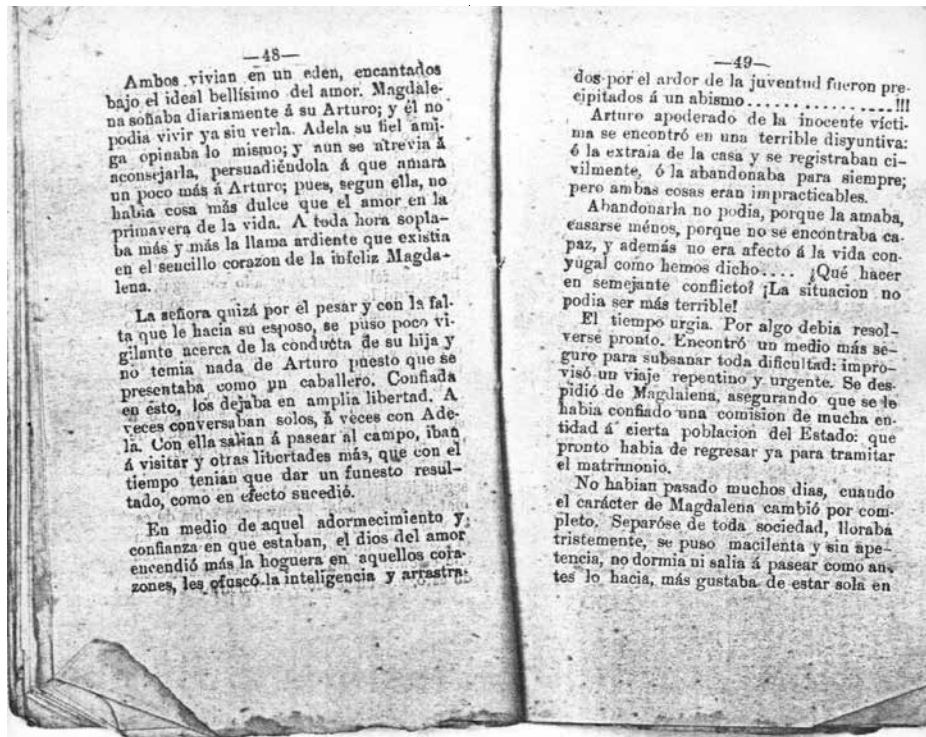 —48—
Ambos vivian en un eden, encantados
bajo el ideal bellísimo del amor. Magdale-
na soñaba diariamente á su Arturo; y él no
podia vivir ya sin verla. Adela su fiel ami-
ga opinaba lo mismo; y aun se atrevia á
aconsejarla, persuadiéndola á que amara
un poco más á Arturo; pues, segun ella, no
habia cosa más dulce que el amor en la
primavera de la vida. A toda hora sopla-
ba más y más la llama ardiente que existia
en el sencillo corazon de la infeliz Magda-
lena.
La señora quizá por el pesar y con la fal-
ta que le hacia su esposo, se puso poco vi-
gilante acerca de la conducta de su hija y
no temia nada de Arturo puesto que se
presentaba como un caballero. Confiada
en esto, los dejaba en amplia libertad. A
veces conversaban solos, á veces con Ade-
la. Con ella salian á pasear al campo, iban
á visitar y otras libertades más, que con el
tiempo tenian que dar un funesto resul-
tado, como en efecto sucedió.
En medio de aquel adormecimiento y
confianza en que estaban, el dios del amor
encendió más la hoguera en aquellos cora-
zones, les ofuscó la inteligencia y arrastra-
—49—
dos por el ardor de la juventud fueron pre-
cipitados á un abismo................!!!
Arturo apoderado de la inocente vícti-
ma se encontró en una terrible disyuntiva:
ó la extraia de la casa y se registraban ci-
vilmente, ó la abandonaba para siempre;
pero ambas cosas eran impracticables.
Abandonarla no podia, porque la amaba,
casarse ménos, porque no se encontraba ca-
paz, y además no era afecto á la vida con-
yugal como hemos dicho.... ¿Qué hacer
en semejante conflicto? ¡La situacion no
podia ser más terrible!
El tiempo urgia. Por algo debia resol-
verse pronto. Encontró un medio más se-
guro para subsanar toda dificultad: impro-
visó un viaje repentino y urgente. Se des-
pidió de Magdalena, asegurando que se le
habia confiado una comision de mucha en-
tidad á cierta poblacion del Estado: que
pronto habia de regresar ya para tramitar
el matrimonio.
No habian pasado muchos dias, cuando
el carácter de Magdalena cambió por com-
pleto. Separóse de toda sociedad, lloraba
tristemente, se puso macilenta y sin ape-
tencia, no dormia ni salia á pasear como an-
tes lo hacia, más gustaba de estar sola en